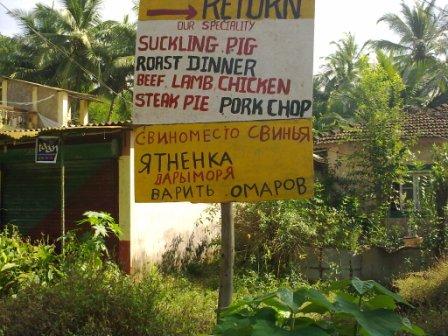 RETURN
OUR SPECIALITY
SUCKLING. PIG
ROAST DINNER
BEEF. LAMB. CHICKEN
STEAK PIE PORK CHOP
СВИНОМЕСТО СВИНЬЯ
ЯТНЕНКА
ДАРЫМОРЯ
ВАРИТЬ. ОМАРОВ